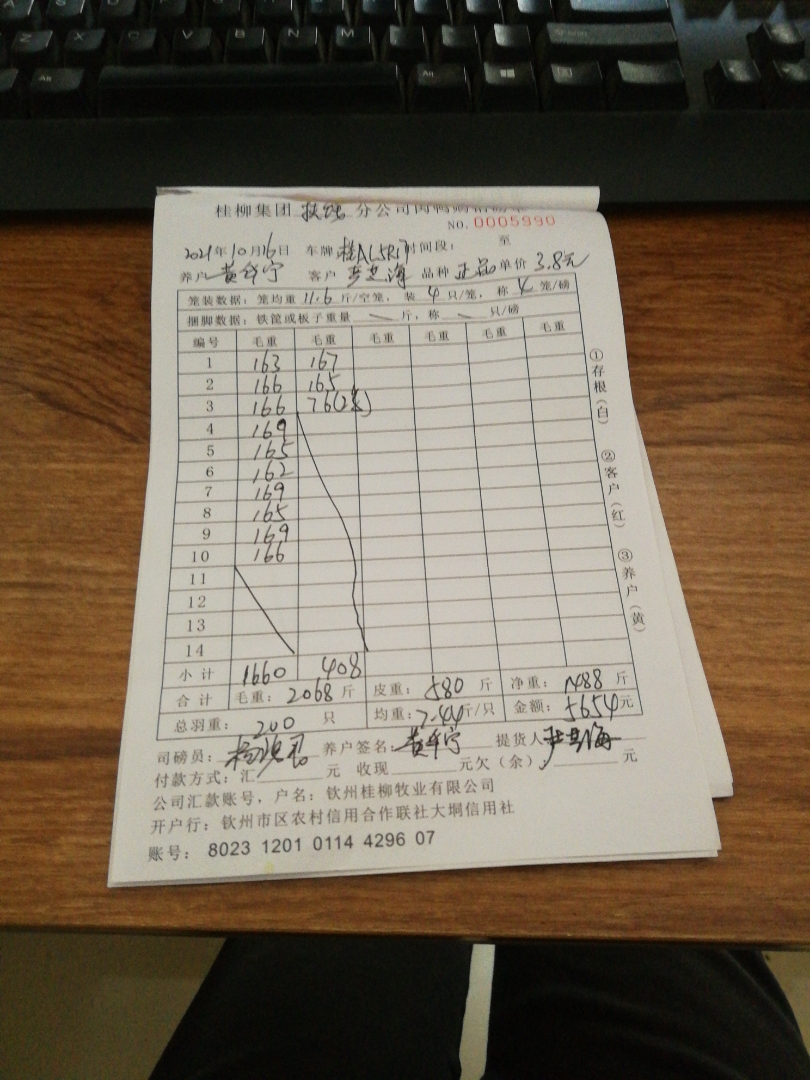 桂柳集团 扶绥 分公司肉鸭购销磅单
NO. 0005990
2021年10月16日 车牌 时间段： 至
养户 黄华宁 客户 品种 正品 单价 3.8元
笼装数据：笼均重 11.6 斤/空笼，装 4 只/笼，称 4 笼/磅
捆脚数据：铁筐或板子重量 斤，称 只/磅
编号 毛重 毛重 毛重 毛重 毛重 毛重
1 163 167
2 166 165
3 166 76(2笼)
4 169
5 165
6 162
7 169
8 165
9 169
10 166
11
12
13
14
小计 1660 408
合计 毛重：2068 斤 皮重：580 斤 净重：1488 斤
总羽重：200 只 均重：7.44斤/只 金额：5654元
司磅员： 养户签名：黄华宁 提货人
付款方式：汇 元 收现 元欠（余） 元
公司汇款账号，户名：钦州桂柳牧业有限公司
开户行：钦州市区农村信用合作联社大垌信用社
账号： 8023 1201 0114 4296 07
①存根（白） ②客户（红） ③养户（黄）